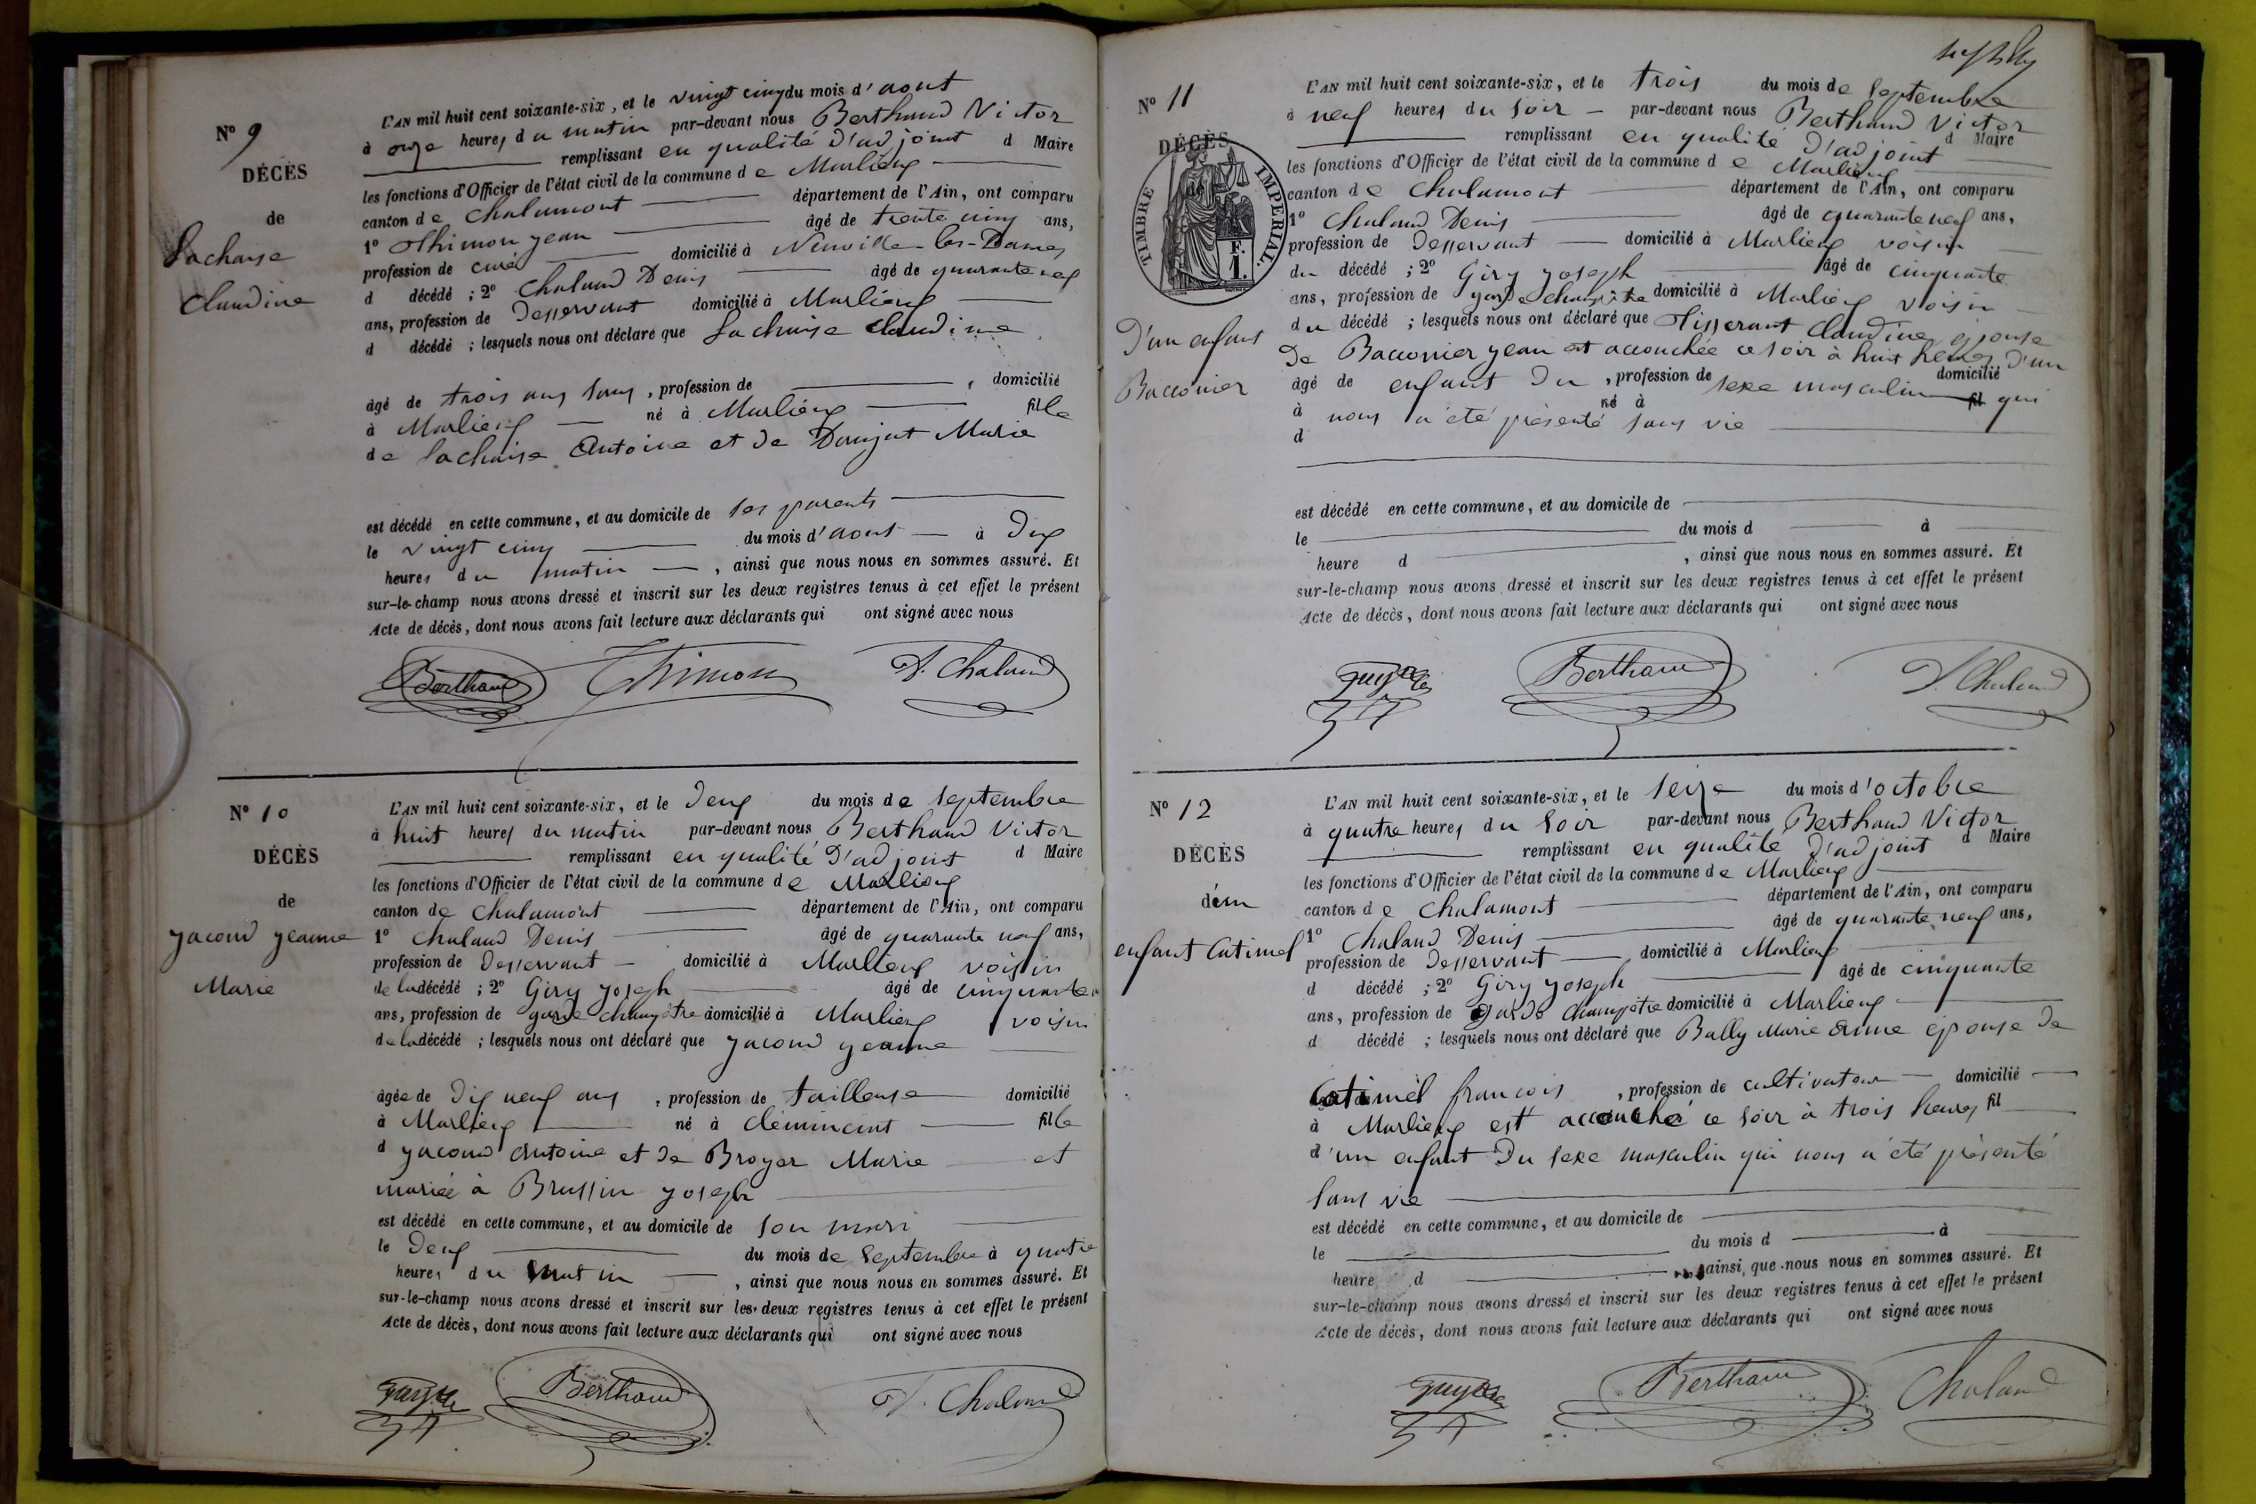 N° 9
DÉCÈS
de
Lachaise
Claudine
L'AN mil huit cent soixante-six, et le vingt cinq du mois d'aout
à onze heures du matin par-devant nous Berthaud Victor
remplissant en qualité d'adjoint d Maire
les fonctions d'Officier de l'état civil de la commune de Marlieux
canton de Chalamont département de l'Ain, ont comparu
1° Thimon jean âgé de trente cinq ans,
profession de curé domicilié à Neuville-les-Dames
d décédé ; 2° Chaland Denis âgé de quarante neuf
ans, profession de Desservant domicilié à Marlieux
d décédé ; lesquels nous ont déclaré que Lachaise Claudine
âgé de trois ans , profession de , domicilié
à Marlieux né à Marlieux fille
de Lachaise Antoine et de Marie
est décédé en cette commune, et au domicile de ses parents
le vingt cinq du mois d'aout à Dix
heures du matin , ainsi que nous nous en sommes assuré. Et
sur-le-champ nous avons dressé et inscrit sur les deux registres tenus à cet effet le présent
Acte de décès, dont nous avons fait lecture aux déclarants qui ont signé avec nous
Berthaud Thimon D. Chaland
N° 10
DÉCÈS
de
jacoud jeanne
Marie
L'AN mil huit cent soixante-six, et le Deux du mois de Septembre
à huit heures du matin par-devant nous Berthaud Victor
remplissant en qualité d'adjoint d Maire
les fonctions d'Officier de l'état civil de la commune de Marlieux
canton de Chalamont département de l'Ain, ont comparu
1° Chaland Denis âgé de quarante neuf ans,
profession de Desservant domicilié à Marlieux voisin
de la décédé ; 2° Giry joseph âgé de cinquante
ans, profession de garde champêtre domicilié à Marlieux voisin
de la décédé ; lesquels nous ont déclaré que jacoud jeanne
âgée de Dix neuf ans , profession de tailleuse domicilié
à Marlieux né à fille
d jacoud Antoine et de Broyer Marie et
mariée à Brussin joseph
est décédé en cette commune, et au domicile de son mari
le Deux du mois de Septembre à quatre
heures du matin , ainsi que nous nous en sommes assuré. Et
sur-le-champ nous avons dressé et inscrit sur les deux registres tenus à cet effet le présent
Acte de décès, dont nous avons fait lecture aux déclarants qui ont signé avec nous
Berthaud D. Chaland
N° 11
DÉCÈS
TIMBRE IMPERIAL
F.
1.
D'un enfant
Bacconier
L'AN mil huit cent soixante-six, et le trois du mois de Septembre
à neuf heures du soir par-devant nous Berthaud Victor
remplissant en qualité d'adjoint d Maire
les fonctions d'Officier de l'état civil de la commune de Marlieux
canton de Chalamont département de l'Ain, ont comparu
1° Chaland Denis âgé de quarante neuf ans,
profession de Desservant domicilié à Marlieux voisin
du décédé ; 2° Giry joseph âgé de cinquante
ans, profession de garde champêtre domicilié à Marlieux voisin
du décédé ; lesquels nous ont déclaré que Tisserant Claudine epouse
De Bacconier jean est accouchée ce soir à huit heures d'un
âgé de enfant Du , profession de sexe masculin domicilié
à nous a été présenté né à sans vie fil qui
d
est décédé en cette commune, et au domicile de
le du mois d à
heure d , ainsi que nous nous en sommes assuré. Et
sur-le-champ nous avons dressé et inscrit sur les deux registres tenus à cet effet le présent
Acte de décès, dont nous avons fait lecture aux déclarants qui ont signé avec nous
Berthaud D. Chaland
N° 12
DÉCÈS
d'un
enfant Catimel
L'AN mil huit cent soixante-six, et le seize du mois d'octobre
à quatre heures du soir par-devant nous Berthaud Victor
remplissant en qualité d'adjoint d Maire
les fonctions d'Officier de l'état civil de la commune de Marlieux
canton de Chalamont département de l'Ain, ont comparu
1° Chaland Denis âgé de quarante neuf ans,
profession de Desservant domicilié à Marlieux
d décédé ; 2° Giry joseph âgé de cinquante
ans, profession de garde champêtre domicilié à Marlieux
d décédé ; lesquels nous ont déclaré que Bally Marie Anne épouse de
Catimel francois , profession de cultivateur domicilié
à Marlieux est accouché ce soir à trois heures fil
d'un enfant Du sexe masculin qui nous a été présenté
sans vie
est décédé en cette commune, et au domicile de
le du mois d à
heure d ainsi que nous nous en sommes assuré. Et
sur-le-champ nous avons dressé et inscrit sur les deux registres tenus à cet effet le présent
Acte de décès, dont nous avons fait lecture aux déclarants qui ont signé avec nous
Berthaud Chaland